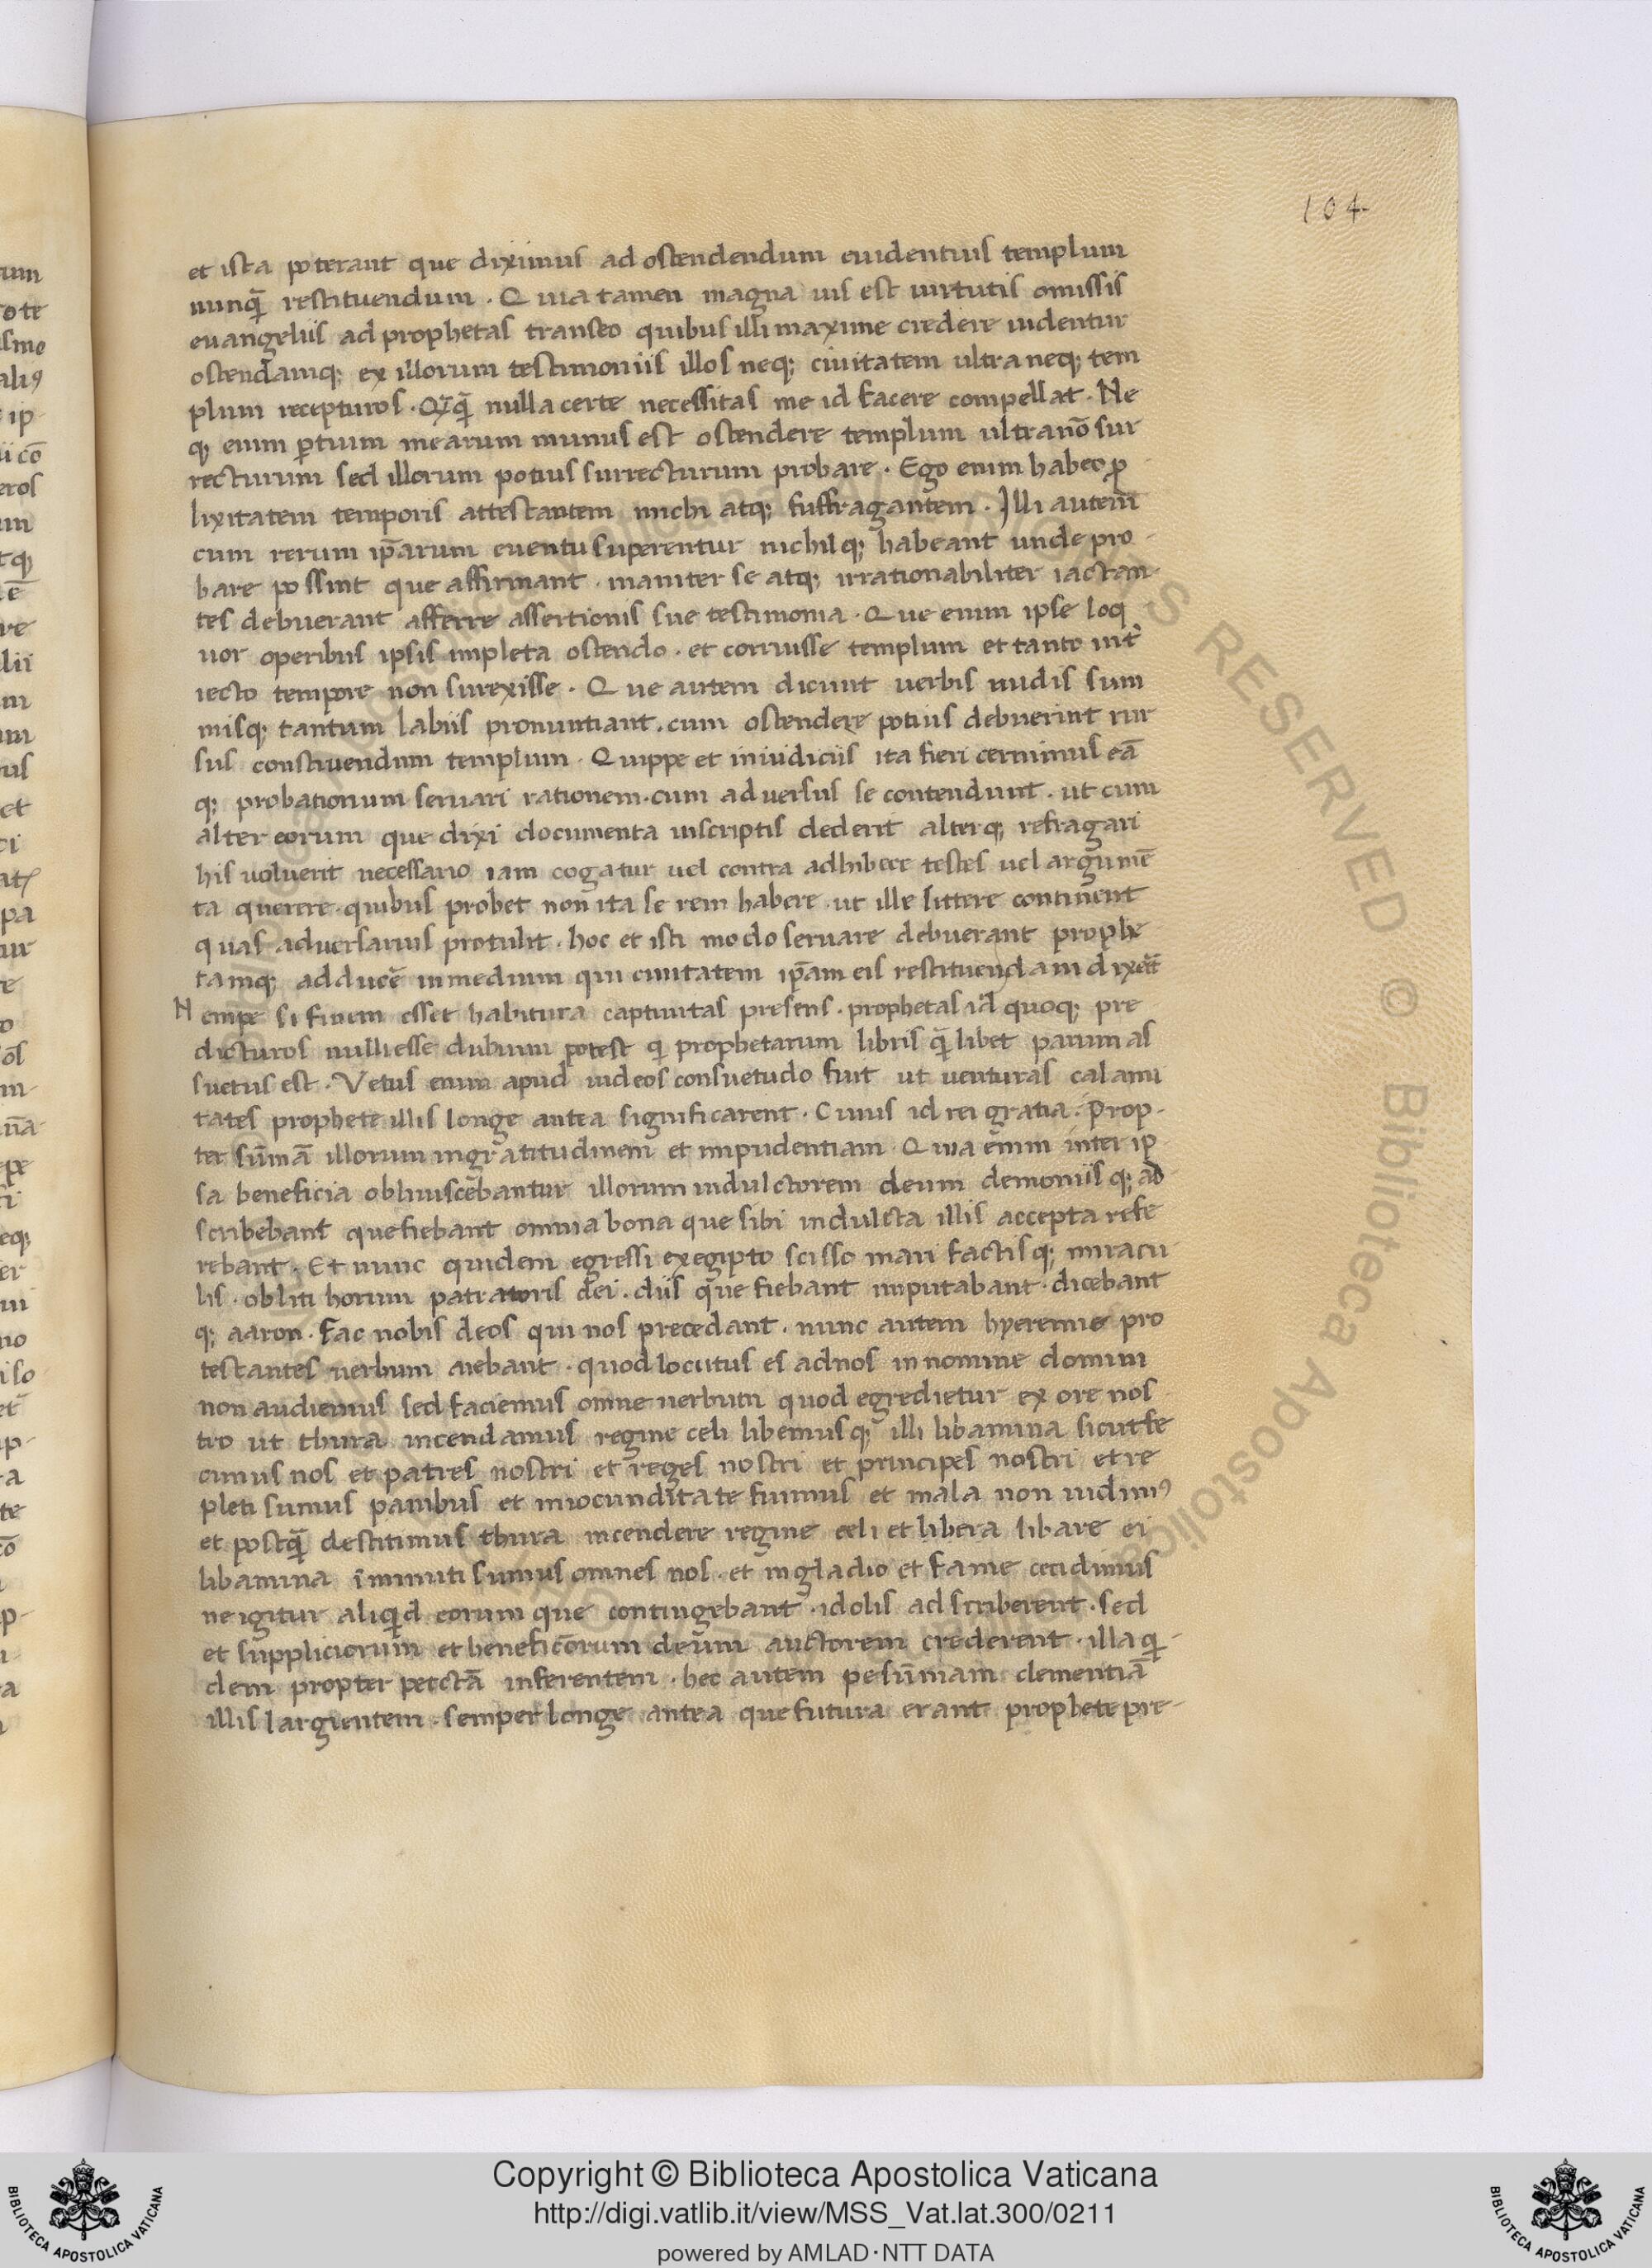 104
et ista poterant que diximus ad ostendendum euidentius templum
nunq̃ restituendum . Quia tamen magna uis est uirtutis omissis
euangeliis ad prophetas transeo quibus illi maxime credere uidentur
ostendamq; ex illorum testimoniis illos neq; ciuitatem ultra neq; tem
plum recepturos . Qq̃ nulla certe necessitas me id facere compellat . Ne
q; enim ꝑtium mearum munus est ostendere templum ultra nō sur
recturum sed illorum potius surrecturum probare . Ego enim habeo ꝓ
lixitatem temporis attestantem michi atq; suffragantem . Illi autem
cum rerum ip̄arum euentu superentur nichilq; habeant unde pro-
bare possint que affirmant . inaniter se atq; irrationabiliter iactan-
tes debuerant afferre assertionis sue testimonia . Que enim ipse loq
uor operibus ipsis impleta ostendo . et corruisse templum et tanto int
iecto tempore non surexisse . Que autem dicunt uerbis nudis sum
misq; tantum labiis pronuntiant . cum ostendere potius debuerint rur
sus constiuendum templum . Quippe et in iudiciis ita fieri cernimus eā
q; probationum seruari rationem . cum aduersus se contendunt . ut cum
alter eorum que dixi documenta inscriptis dederit alterq; refragari
his uoluerit necessario iam cogatur uel contra adhibere testes uel argumē
ta querere . quibus probet non ita se rem habere . ut ille littere continent
quas aduersarius protulit . hoc et isti modo seruare debuerant prophe
tamq; adducē in medium qui ciuitatem ip̄am eis restituendam dixēt
Nempe si finem esset habitura captiuitas presens . prophetas id quoq; pre
dicturos nulli esse dubium potest qi prophetarum libris q̃libet parum as
suetus est . Vetus enim apud iudeos consuetudo fuit ut uenturas calami
tates prophete illis longe antea significarent . Cuius id rei gratia . Prop-
ter sūmā illorum ingratitudinem et impudentiam . Quia enim inter ip
sa beneficia obliuiscebantur illorum indulctorem deum demoniisq; ad
scribebant que fiebant omnia bona que sibi indulcta illis accepta refe
rebant . Et nunc quidem egressi ex egipto scisso mari factisq; miracu
lis . obliti horum patratoris dei . diis que fiebant imputabant . dicebant
q; aaron . Fac nobis deos qui nos precedant . nunc autem hyeremie pro
testantes uerbum aiebant . quod locutus es ad nos in nomine domini
non audiemus sed faciemus omne uerbum quod egredietur ex ore nos
tro ut thura incendamus regine celi libemusq; illi libamina sicut fe
cimus nos et patres nostri et reges nostri et principes nostri et re
pleti sumus panibus et in iocunditate fuimus et mala non uidimꝰ
et postq̃ destitimus thura incendere regine celi et libera libare ei
libamina īminuti sumus omnes nos . et in gladio et fame cecidimus
ne igitur aliqid eorum que contingebant . idolis adscriberent . sed
et suppliciorum et beneficorum deum auctorem crederent . illa qi-
dem propter pecctā inferentem . hec autem pe sūmam clementiā
illis largientem . semper longe antea que futura erant prophete pre-
Copyright © Biblioteca Apostolica Vaticana
http://digi.vatlib.it/view/MSS_Vat.lat.300/0211
powered by AMLAD·NTT DATA